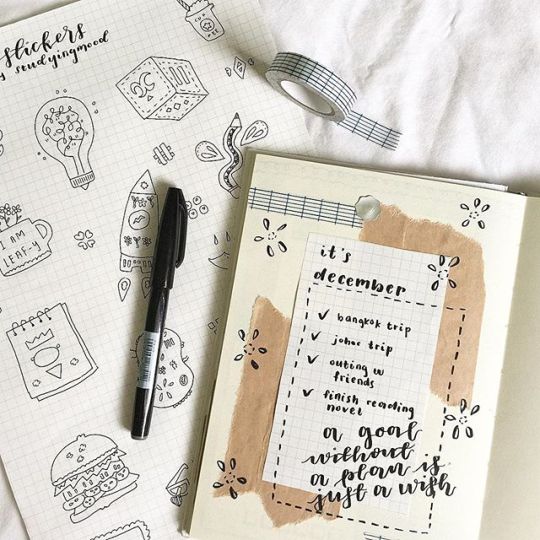 stickers
studyingmood
I AM
LEAF-Y
it's
december
✓ bangkok trip
✓ johor trip
✓ outing w
friends
✓ finish reading
novel
a goal
without
a plan is
just a wish